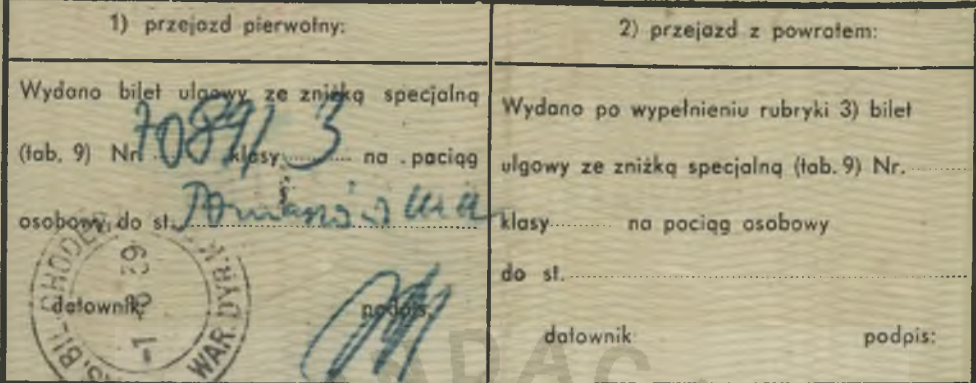 1) przejazd pierwotny:
Wydano bilet ulgowy ze zniżką specjalną
(tab. 9) Nr. 70891 klasy 3 na pociąg
osobowy do st.
datownik: podpis:
2) przejazd z powrotem:
Wydano po wypełnieniu rubryki 3) bilet
ulgowy ze zniżką specjalną (tab. 9) Nr. ........
klasy ........ na pociąg osobowy
do st. ........
datownik podpis:
WAR.